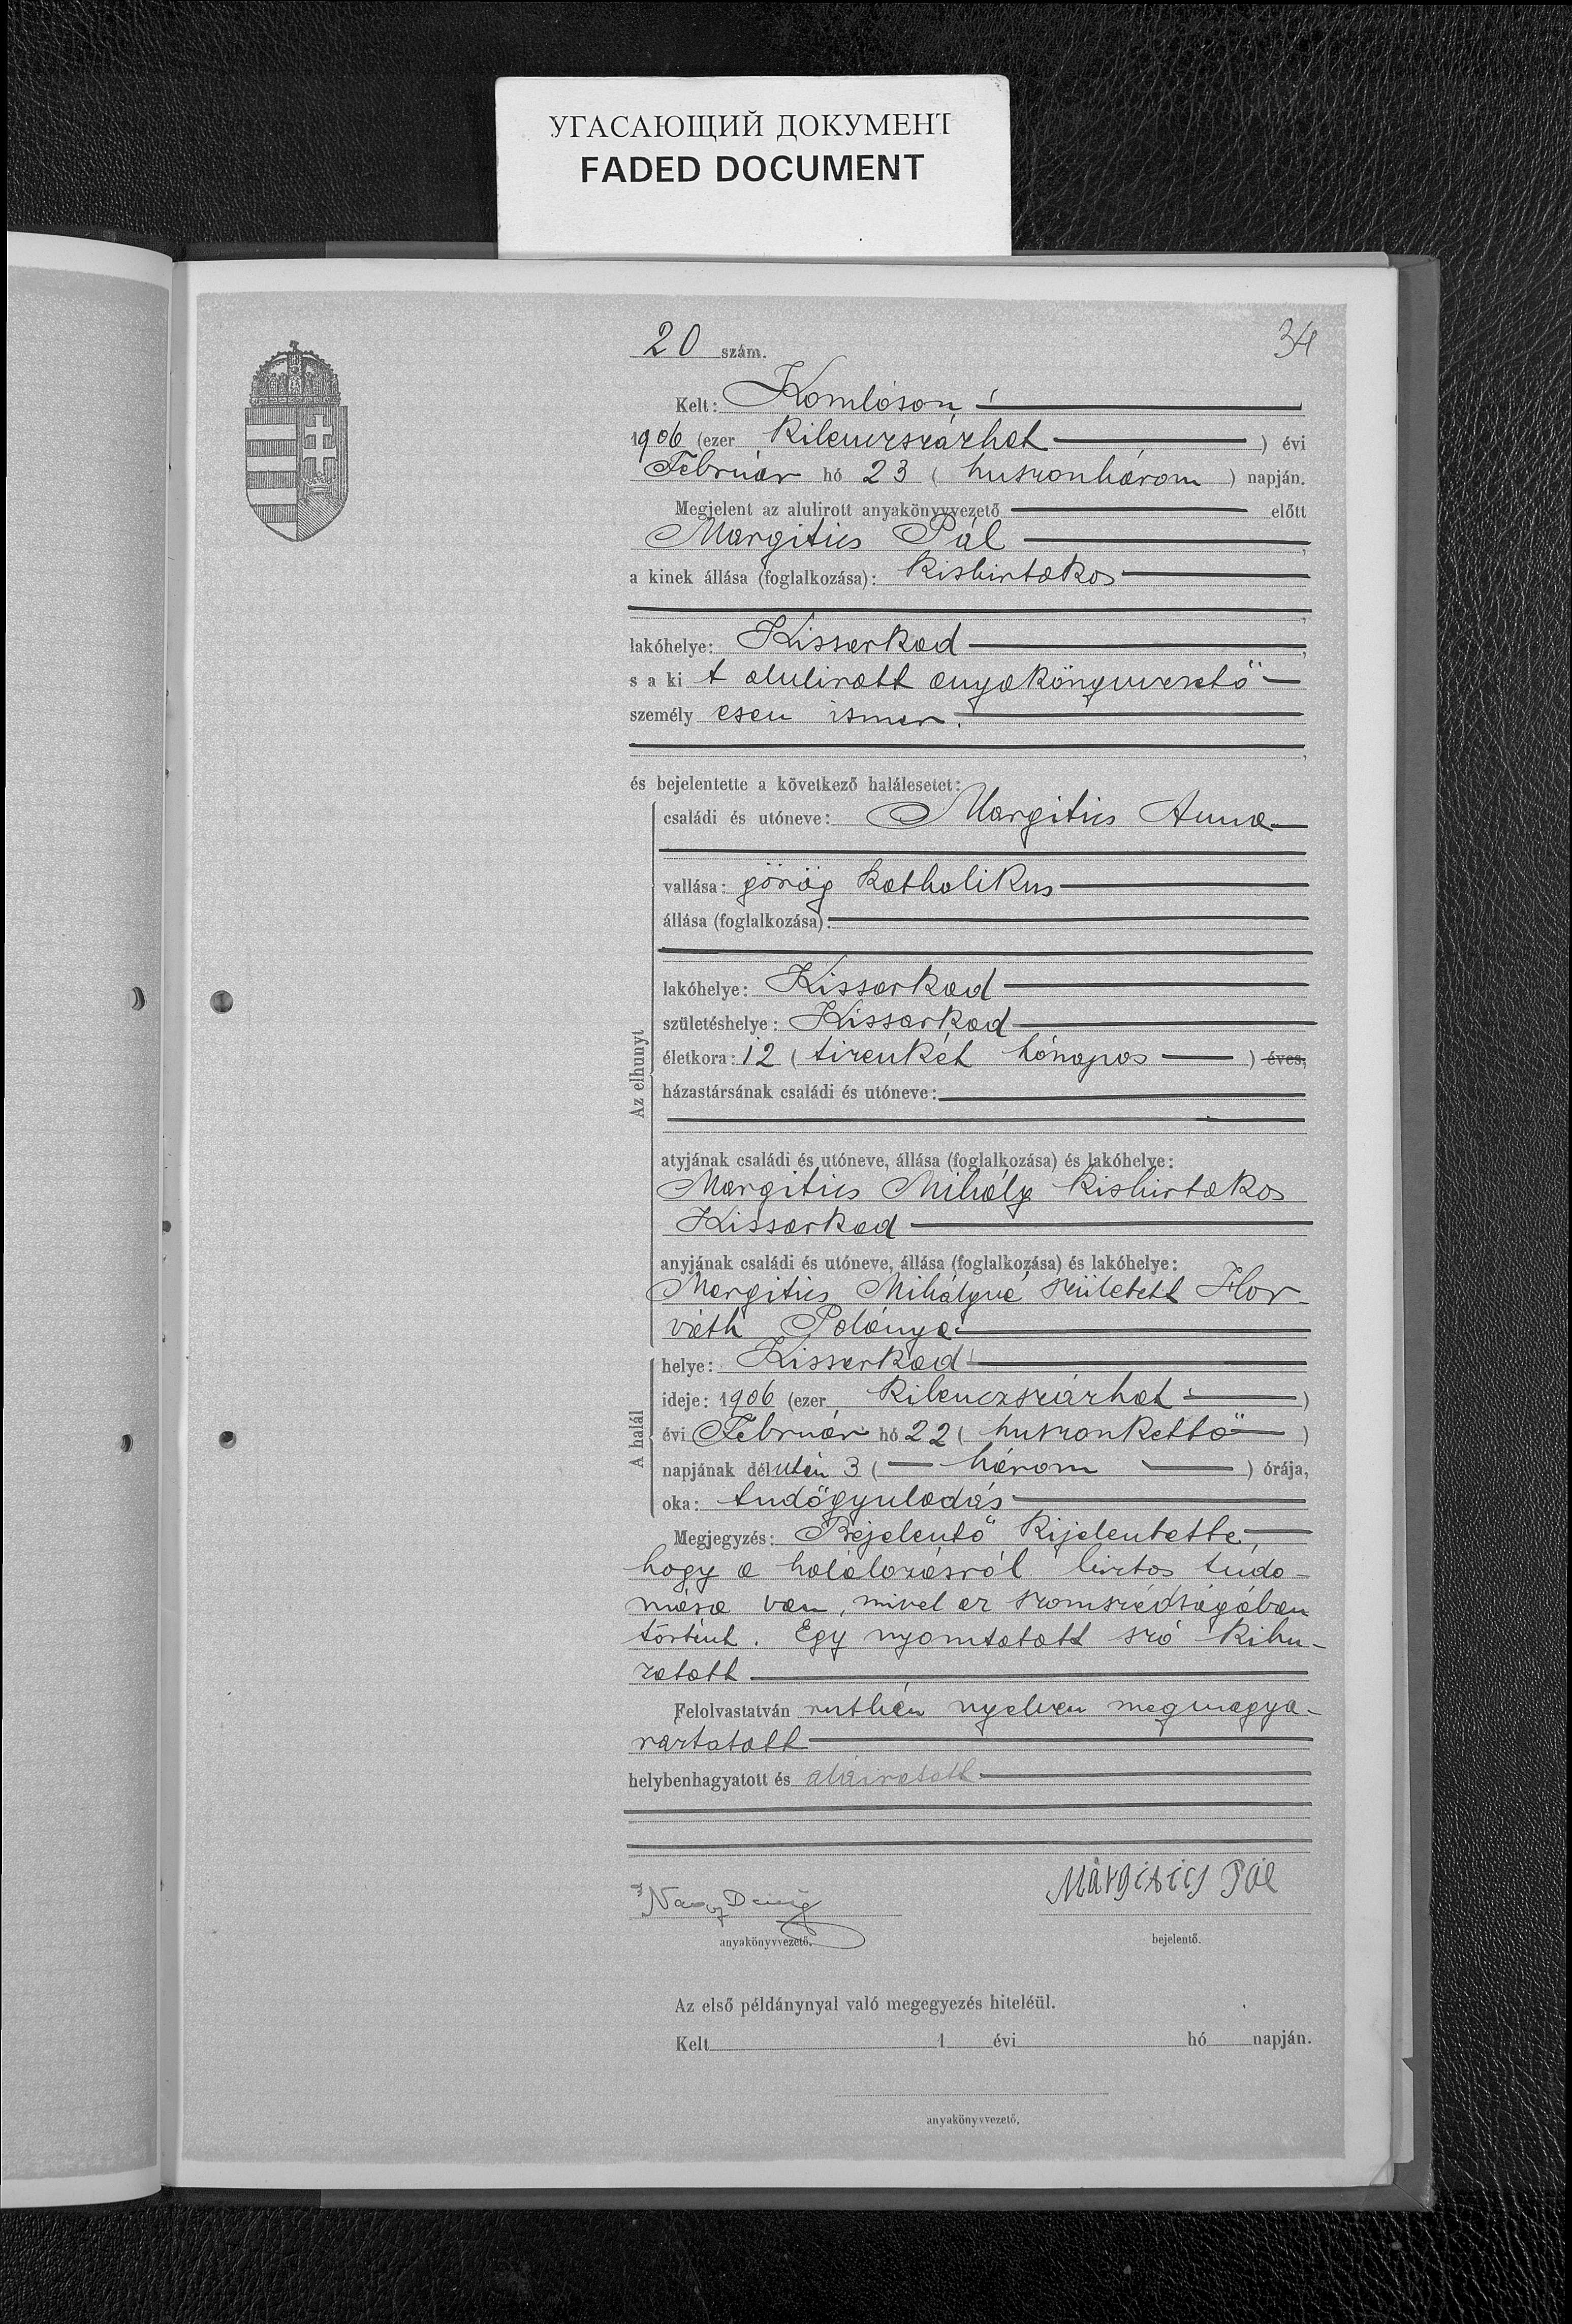 УГАСАЮЩИЙ ДОКУМЕНТ
FADED DOCUMENT
20 szám.
34
Kelt: Komlóson
1906 (ezer kilenczszázhat ) évi
Február hó 23 ( huszonhárom ) napján.
Megjelent az alulirott anyakönyvvezető előtt
Margitics Pál ,
a kinek állása (foglalkozása): kisbirtokos
,
lakóhelye: Kissarkad ,
s a ki t alulirott anyakönyvvezető
személy esen ismer.
,
és bejelentette a következő halálesetet:
Az elhunyt
családi és utóneve: Margitics Anna
vallása: görög katholikus
állása (foglalkozása):
lakóhelye: Kissarkad
születéshelye: Kissarkad
életkora: 12 ( tizenkét hónapos ) éves,
házastársának családi és utóneve:
atyjának családi és utóneve, állása (foglalkozása) és lakóhelye:
Margitics Mihály kisbirtokos
Kissarkad
anyjának családi és utóneve, állása (foglalkozása) és lakóhelye:
Margitics Mihályné született Hor-
váth Polánya
A halál
helye: Kissarkad
ideje: 1906 (ezer kilenczszázhat )
évi Február hó 22 ( huszonkettő )
napjának délután 3 ( három ) órája,
oka: tüdőgyuladás
Megjegyzés: Bejelentő kijelentette,
hogy a halálozásról biztos tudo-
mása van, mivel az szomszédságában
történt. Egy nyomtatott szó kihu-
zatott
Felolvastatván ruthén nyelven megmagya-
ráztatott
helybenhagyatott és aláiratott
Nagy
Margitics Pál
anyakönyvvezető.
bejelentő.
Az első példánynyal való megegyezés hiteléül.
Kelt 1 évi hó napján.
anyakönyvvezető.